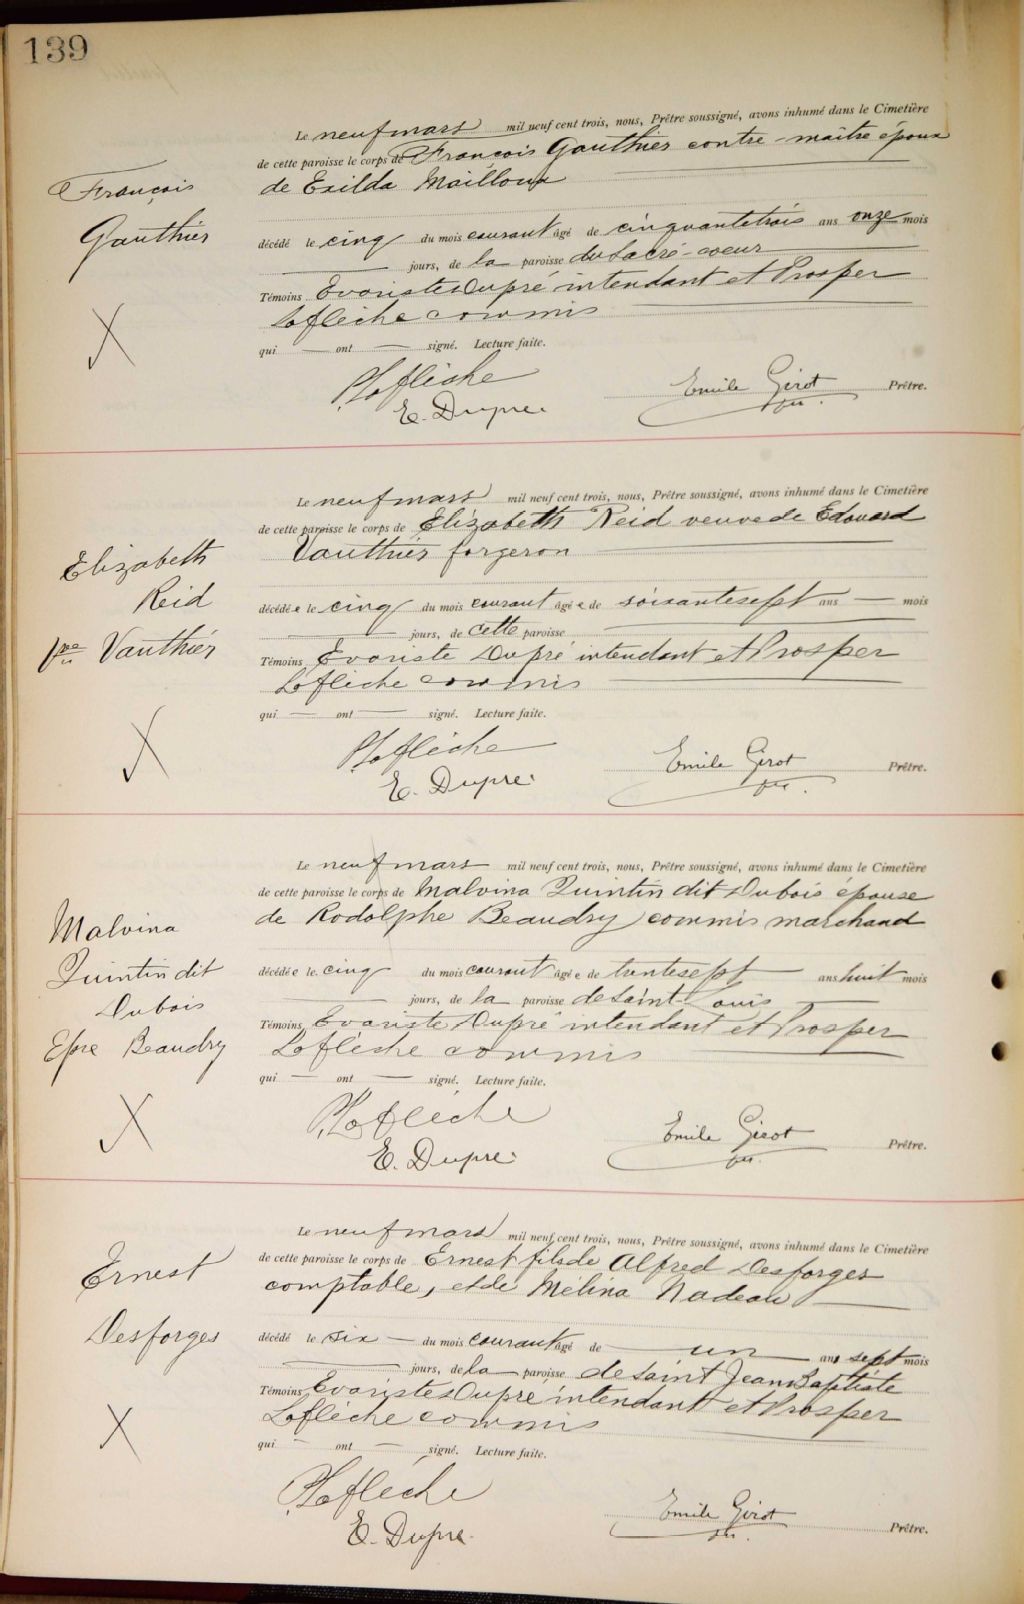 139
Le neuf mars mil neuf cent trois, nous, Prêtre soussigné, avons inhumé dans le Cimetière
de cette paroisse le corps de François Gauthier contre-maître époux
de Exilda Mailloux
François
Gauthier
décédé le cinq du mois courant âgé de cinquantetrois ans onze mois
jours, de la paroisse du Sacré-coeur
Témoins Evariste Dupré intendant et Prosper
Laflèche commis
qui — ont — signé. Lecture faite.
P. Laflèche
Emile Girot Prêtre.
E. Dupré
ptre.
Le neuf mars mil neuf cent trois, nous, Prêtre soussigné, avons inhumé dans le Cimetière
de cette paroisse le corps de Elizabeth Reid veuve de Edouard
Vauthier forgeron
Elizabeth
Reid
Vve Vauthier
décédée le cinq du mois courant âgée de soixantesept ans — mois
jours, de cette paroisse
Témoins Evariste Dupré intendant et Prosper
Laflèche commis
qui — ont — signé. Lecture faite.
P. Laflèche
Emile Girot Prêtre.
E. Dupré
ptre.
Le neuf mars mil neuf cent trois, nous, Prêtre soussigné, avons inhumé dans le Cimetière
de cette paroisse le corps de Malvina Quintin dit Dubois épouse
de Rodolphe Beaudry commis marchand
Malvina
Quintin dit
Dubois
Epse Beaudry
décédée le cinq du mois courant âgée de trentesept ans huit mois
jours, de la paroisse de Saint-Louis
Témoins Evariste Dupré intendant et Prosper
Laflèche commis
qui — ont — signé. Lecture faite.
P. Laflèche
Emile Girot Prêtre.
E. Dupré
ptre.
Le neuf mars mil neuf cent trois, nous, Prêtre soussigné, avons inhumé dans le Cimetière
de cette paroisse le corps de Ernest fils de Alfred Desforges
comptable, et de Mélina Nadeau
Ernest
Desforges
décédé le six — du mois courant âgé de un an sept mois
jours, de la paroisse de Saint Jean Baptiste
Témoins Evariste Dupré intendant et Prosper
Laflèche commis
qui — ont — signé. Lecture faite.
P. Laflèche
Emile Girot Prêtre.
E. Dupré
ptre.